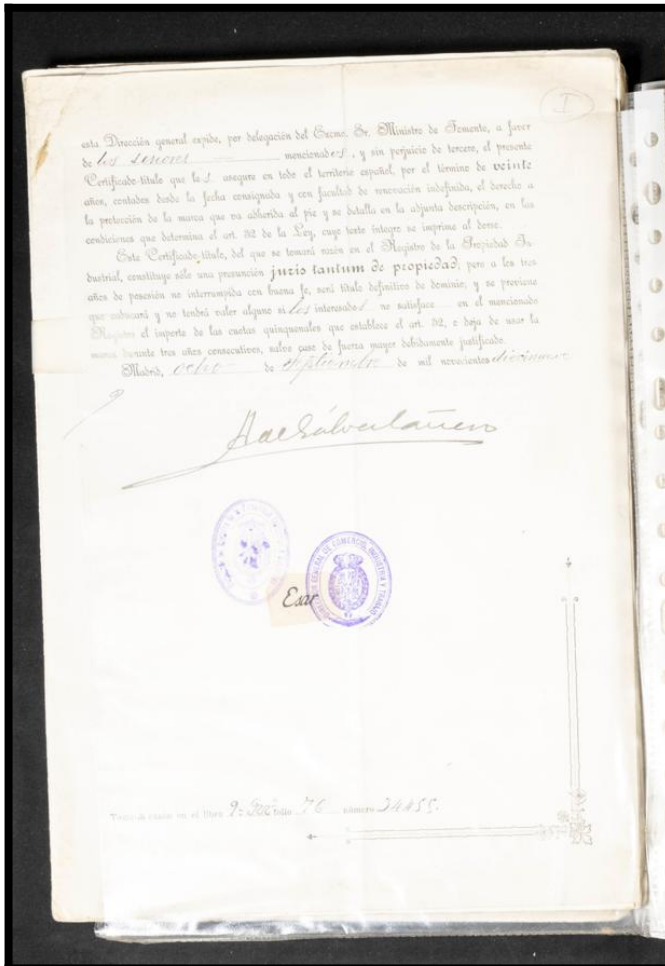 I
esta Dirección general expide, por delegación del Excmo. Sr. Ministro de Fomento, a favor
de los señores mencionados, y sin perjuicio de tercero, el presente
Certificado-título que les asegura en todo el territorio español, por el término de veinte
años, contados desde la fecha consignada y con facultad de renovación indefinida, el derecho a
la protección de la marca que va adherida al pie y se detalla en la adjunta descripción, en las
condiciones que determina el art. 32 de la Ley, cuyo texto íntegro se imprime al dorso.
Este Certificado-título, del que se tomará razón en el Registro de la Propiedad In-
dustrial, constituye sólo una presunción juris tantum de propiedad; pero a los tres
años de posesión no interrumpida con buena fe, será título definitivo de dominio, y se previene
que caducará y no tendrá valor alguno si los interesados no satisface en el mencionado
Registro el importe de las cuotas quinquenales que establece el art. 52, o deja de usar la
marca durante tres años consecutivos, salvo caso de fuerza mayor debidamente justificado.
Madrid, ocho de septiembre de mil novecientos
DIRECCIÓN GENERAL DE COMERCIO, INDUSTRIA Y TRABAJO
Tomada razón en el libro 9º folio 76 número 34455.